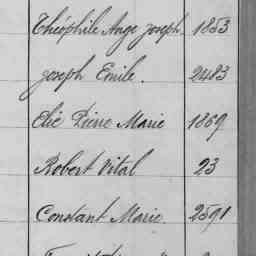 Théophile Ange Joseph. 1853
Joseph Emile. 2483
Elie Pierre Marie 1869
Robert Vital 23
Constant Marie 2591